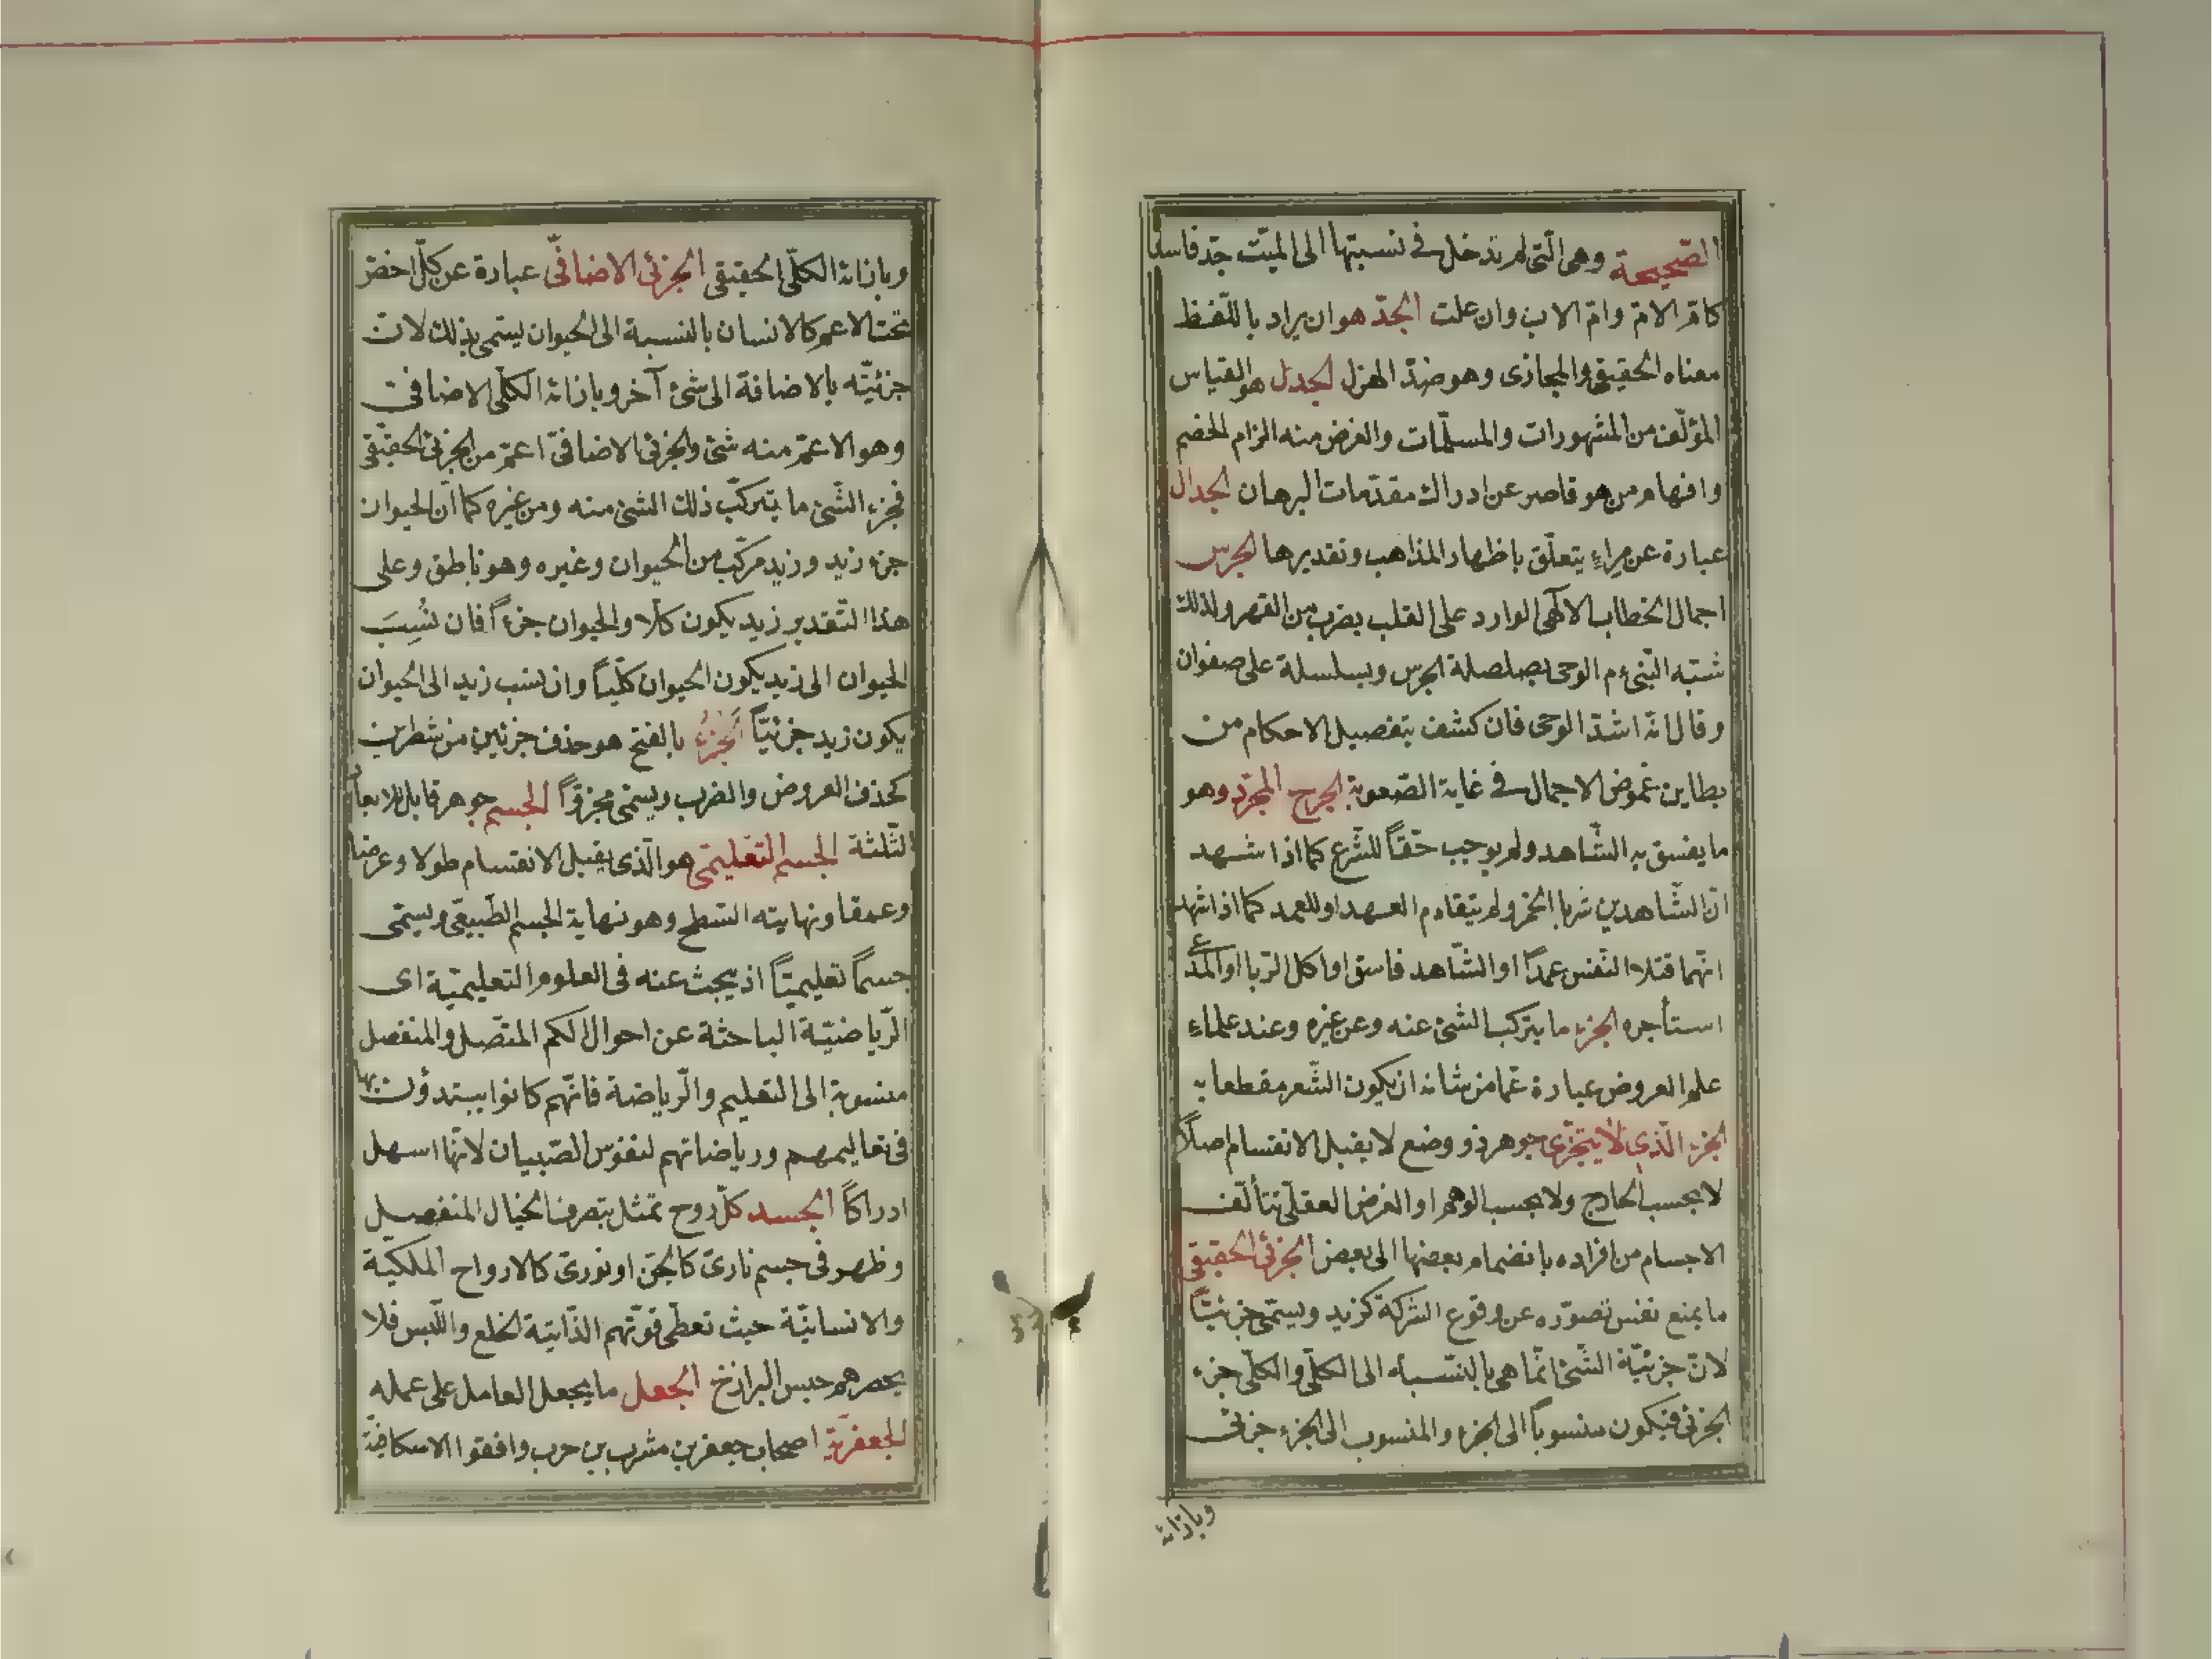 الصّحيحة وهى الّتى لم تدخل فى نسبتها الى الميّت جدّ فاسد
كامّ الامّ وامّ الاب وان علت الجدّ هو ان يراد باللّفظ
معناه الحقيقى والمجازى وهو ضدّ الهزل الجدل هو القياس
المؤلّف من المشهورات والمسلّمات والغرض منه الزام الخصم
وافهام من هو قاصر عن ادراك مقدّمات البرهان الجدال
عبارة عن مراء يتعلّق باظهار المذاهب وتقديرها الجرس
اجمال الخطاب الالهى الوارد على القلب بضرب من القهر ولذلك
شبّه النّبىّ م الوحى بصلصلة الجرس وبسلسلة على صفوان
وقال انّه اشدّ الوحى فان كشف تفصيل الاحكام من
بطاين غموض الاجمال فى غاية الصّعوبة الجرح المجرّد وهو
ما يفسق به الشّاهد ولم يوجب حقّاً للشّرع كما اذا شهد
انّ الشّاهدين شربا الخمر ولم يتقادم العهد او للعبد كما اذا شهد
انّهما قتلا النّفس عمداً او الشّاهد فاسق او اكل الرّبا او المدّعى
استأجره الجزء ما يتركب الشئ عنه وعن غيره وعند علماء
علم العروض عبارة عمّا من شانه ان يكون الشّعر مقطعا به
الجزء الّذى لا يتجزّى جوهر ذو وضع لا يقبل الانقسام اصلاً
لا بحسب الخارج ولا بحسب الوهم او الفرض العقلىّ تتألّف
الاجسام من افراده بانضمام بعضها الى بعض الجزئى الحقيقى
ما يمنع نفس تصوّره عن وقوع الشركة كزيد ويسمّى جزئيّاً
لانّ جزئيّة الشّئ انّما هى بالنّسبة الى الكلّى والكلّى جزء
الجزئى فيكون منسوباً الى الجزء والمنسوب الى الجزء جزئى
وبازائه
وبازائه الكلّى الحقيقى الجزئى الاضافىّ عبارة عن كلّ اخصّ
تحت الاعم كالانسان بالنسبة الى الحيوان يسمّى بذلك لانّ
جزئيّته بالاضافة الى شئ آخر وبازائه الكلّى الاضافى
وهو الاعمّ منه شئ والجزئى الاضافىّ اعمّ من الجزئى الحقيقى
فجزء الشّئ ما يتركّب ذلك الشئ منه ومن غيره كما انّ الحيوان
جزء زيد وزيد مركّب من الحيوان وغيره وهو ناطق وعلى
هذا التّقدير زيد يكون كلّا والحيوان جزءاً فان نُسِبَ
الحيوان الى زيد يكون الحيوان كلّياً وان نسب زيد الى الحيوان
يكون زيد جزئيّاً الجَزْءُ بالفتح هو حذف جزئين من شطرين
كحذف العروض والضرب ويسمّى مجزوّاً الجسم جوهر قابل للابعاد
الثّلثة الجسم التّعليمى هو الّذى يقبل الانقسام طولا وعرضا
وعمقا ونهايته السّطح وهو نهاية الجسم الطّبيعىّ ويسمّى
جسماً تعليميّاً اذ يبحث عنه فى العلوم التعليميّة اى
الرّياضيّة الباحثة عن احوال الكم المتّصل والمنفصل
منسوبة الى التعليم والرّياضة فانّهم كانوا يبتدؤن بها
فى تعاليمهم ورياضاتهم لنفوس الصّبيان لانّها اسهل
ادراكاً الجسد كلّ روح تمثّل بتصرف الخيال المنفصل
وظهر فى جسم نارىّ كالجنّ او نورىّ كالارواح الملكيّة
والانسانيّة حيث تعطى قوّتهم الذّاتية الخلع واللّبس فلا
يحصرهم حبس البرازخ الجعل ما يجعل العامل على عمله
الجعفريّة اصحاب جعفر بن مشرب بن حرب وافقوا الاسكافيّة